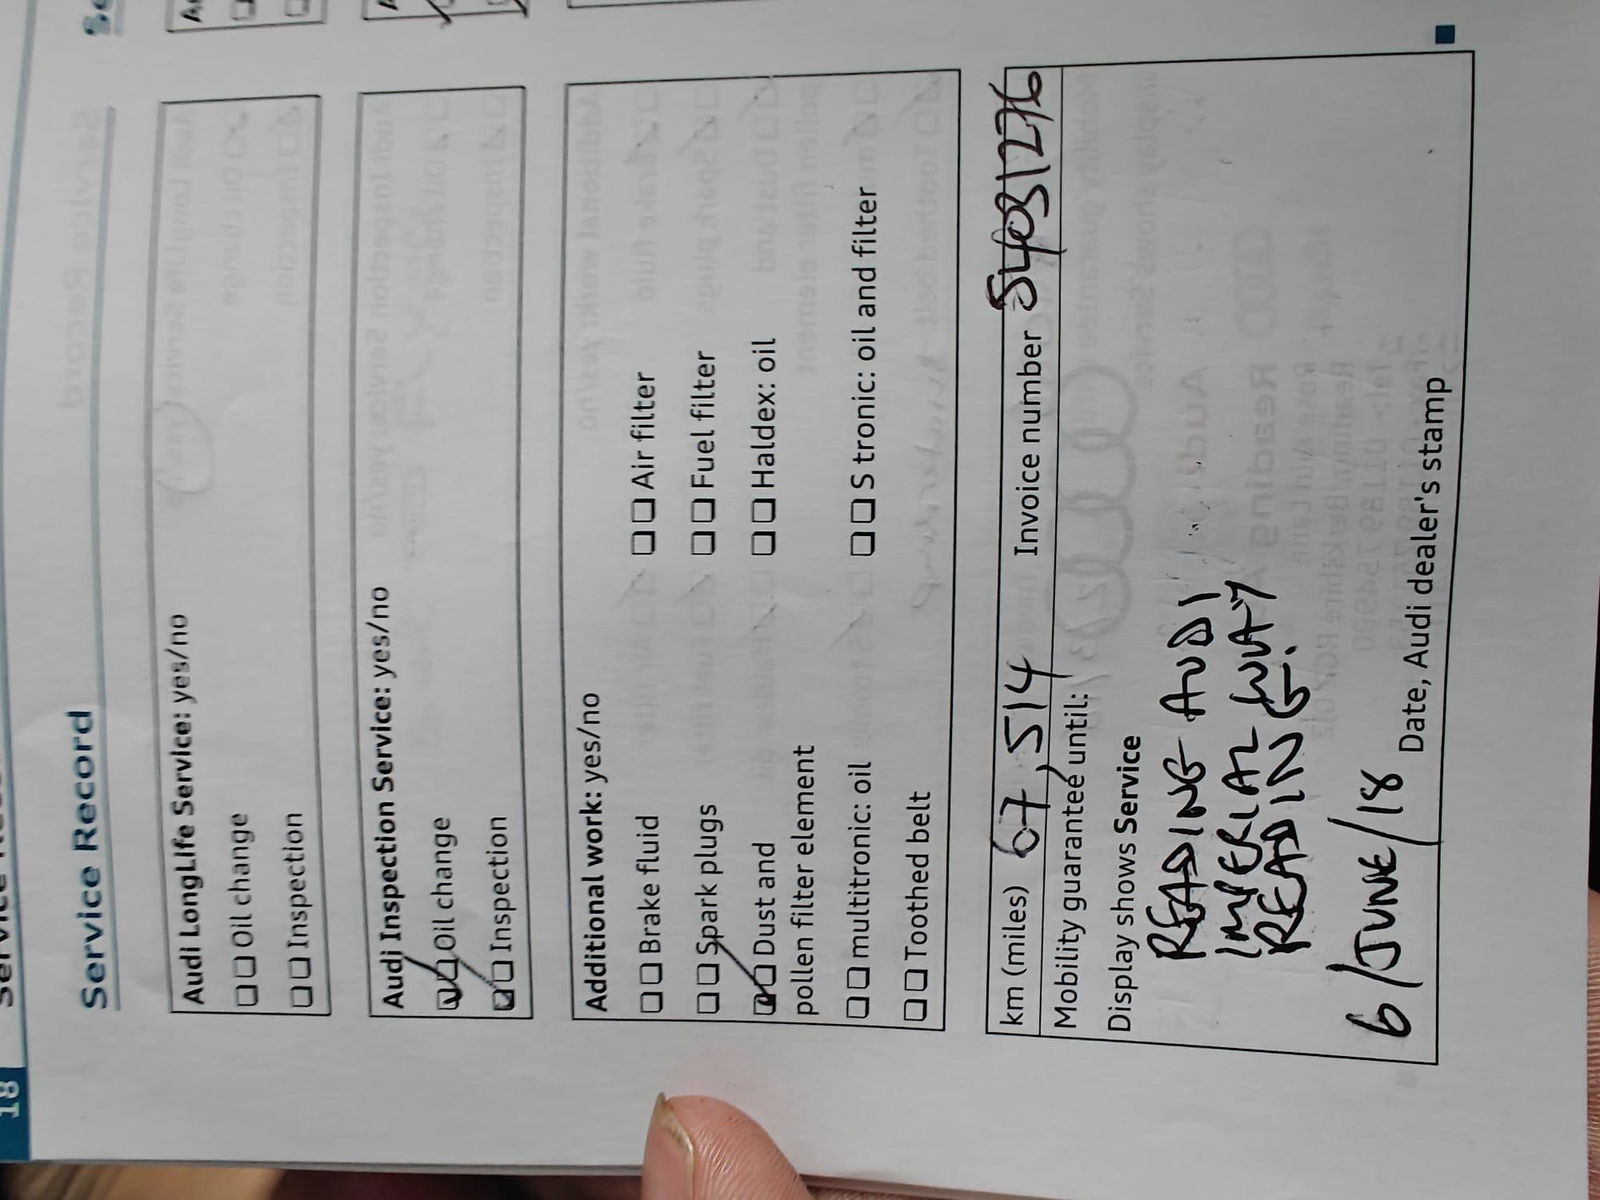 18
Service Record
Audi LongLife Service: yes/no
Oil change
Inspection
Audi Inspection Service: yes/no
Oil change
Inspection
Additional work: yes/no
Brake fluid Air filter
Spark plugs Fuel filter
Dust and Haldex: oil
pollen filter element
multitronic: oil S tronic: oil and filter
Toothed belt
km (miles) 67,514 Invoice number 54031276
Mobility guarantee until:
Display shows Service
READING AUDI
IMPERIAL WAY
READING.
6/JUNE/18
Date, Audi dealer's stamp